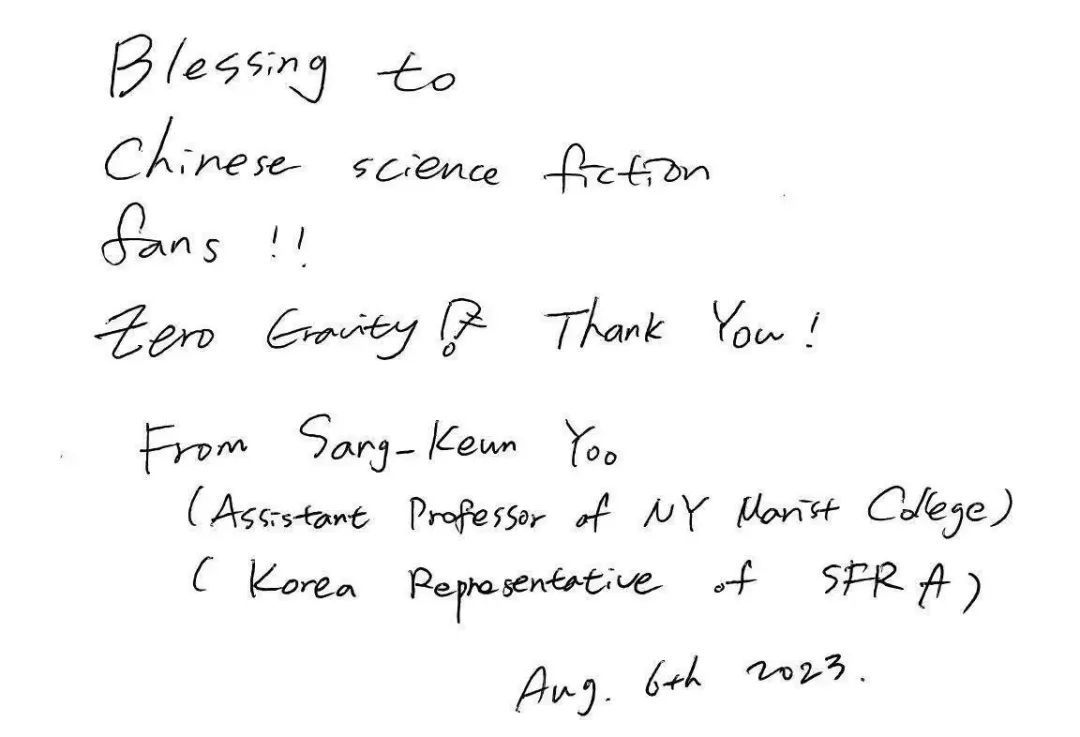 Blessing to
Chinese science fiction
fans !!
Zero Gravity!? Thank You!
From Sang-Keun Yoo
(Assistant Professor of NY Marist College)
(Korea Representative of SFRA)
Aug. 6th 2023.